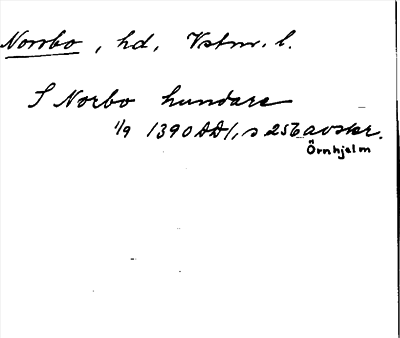 Norrbo, hd, Vstm. l.
I Norbo hundare
1/9 1390 DD1, s 256 avskr.
Örnhjelm